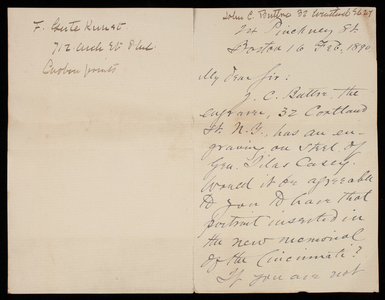 F. Gute Kunst
712 Arch St Phil
Burbon prints
John C. Buttre 32 Cortland St. N.Y
Pinckney St
Boston 16 Feb. 1890
My dear Sir:
J. C. Buttre – the
engraver, 32 Cortland
St. N.Y., has an en-
graving on steel of
Gen. Silas Casey.
Would it be agreeable
to you to have that
portrait inserted in
the new memorial
of the Cincinnati?
If you are not